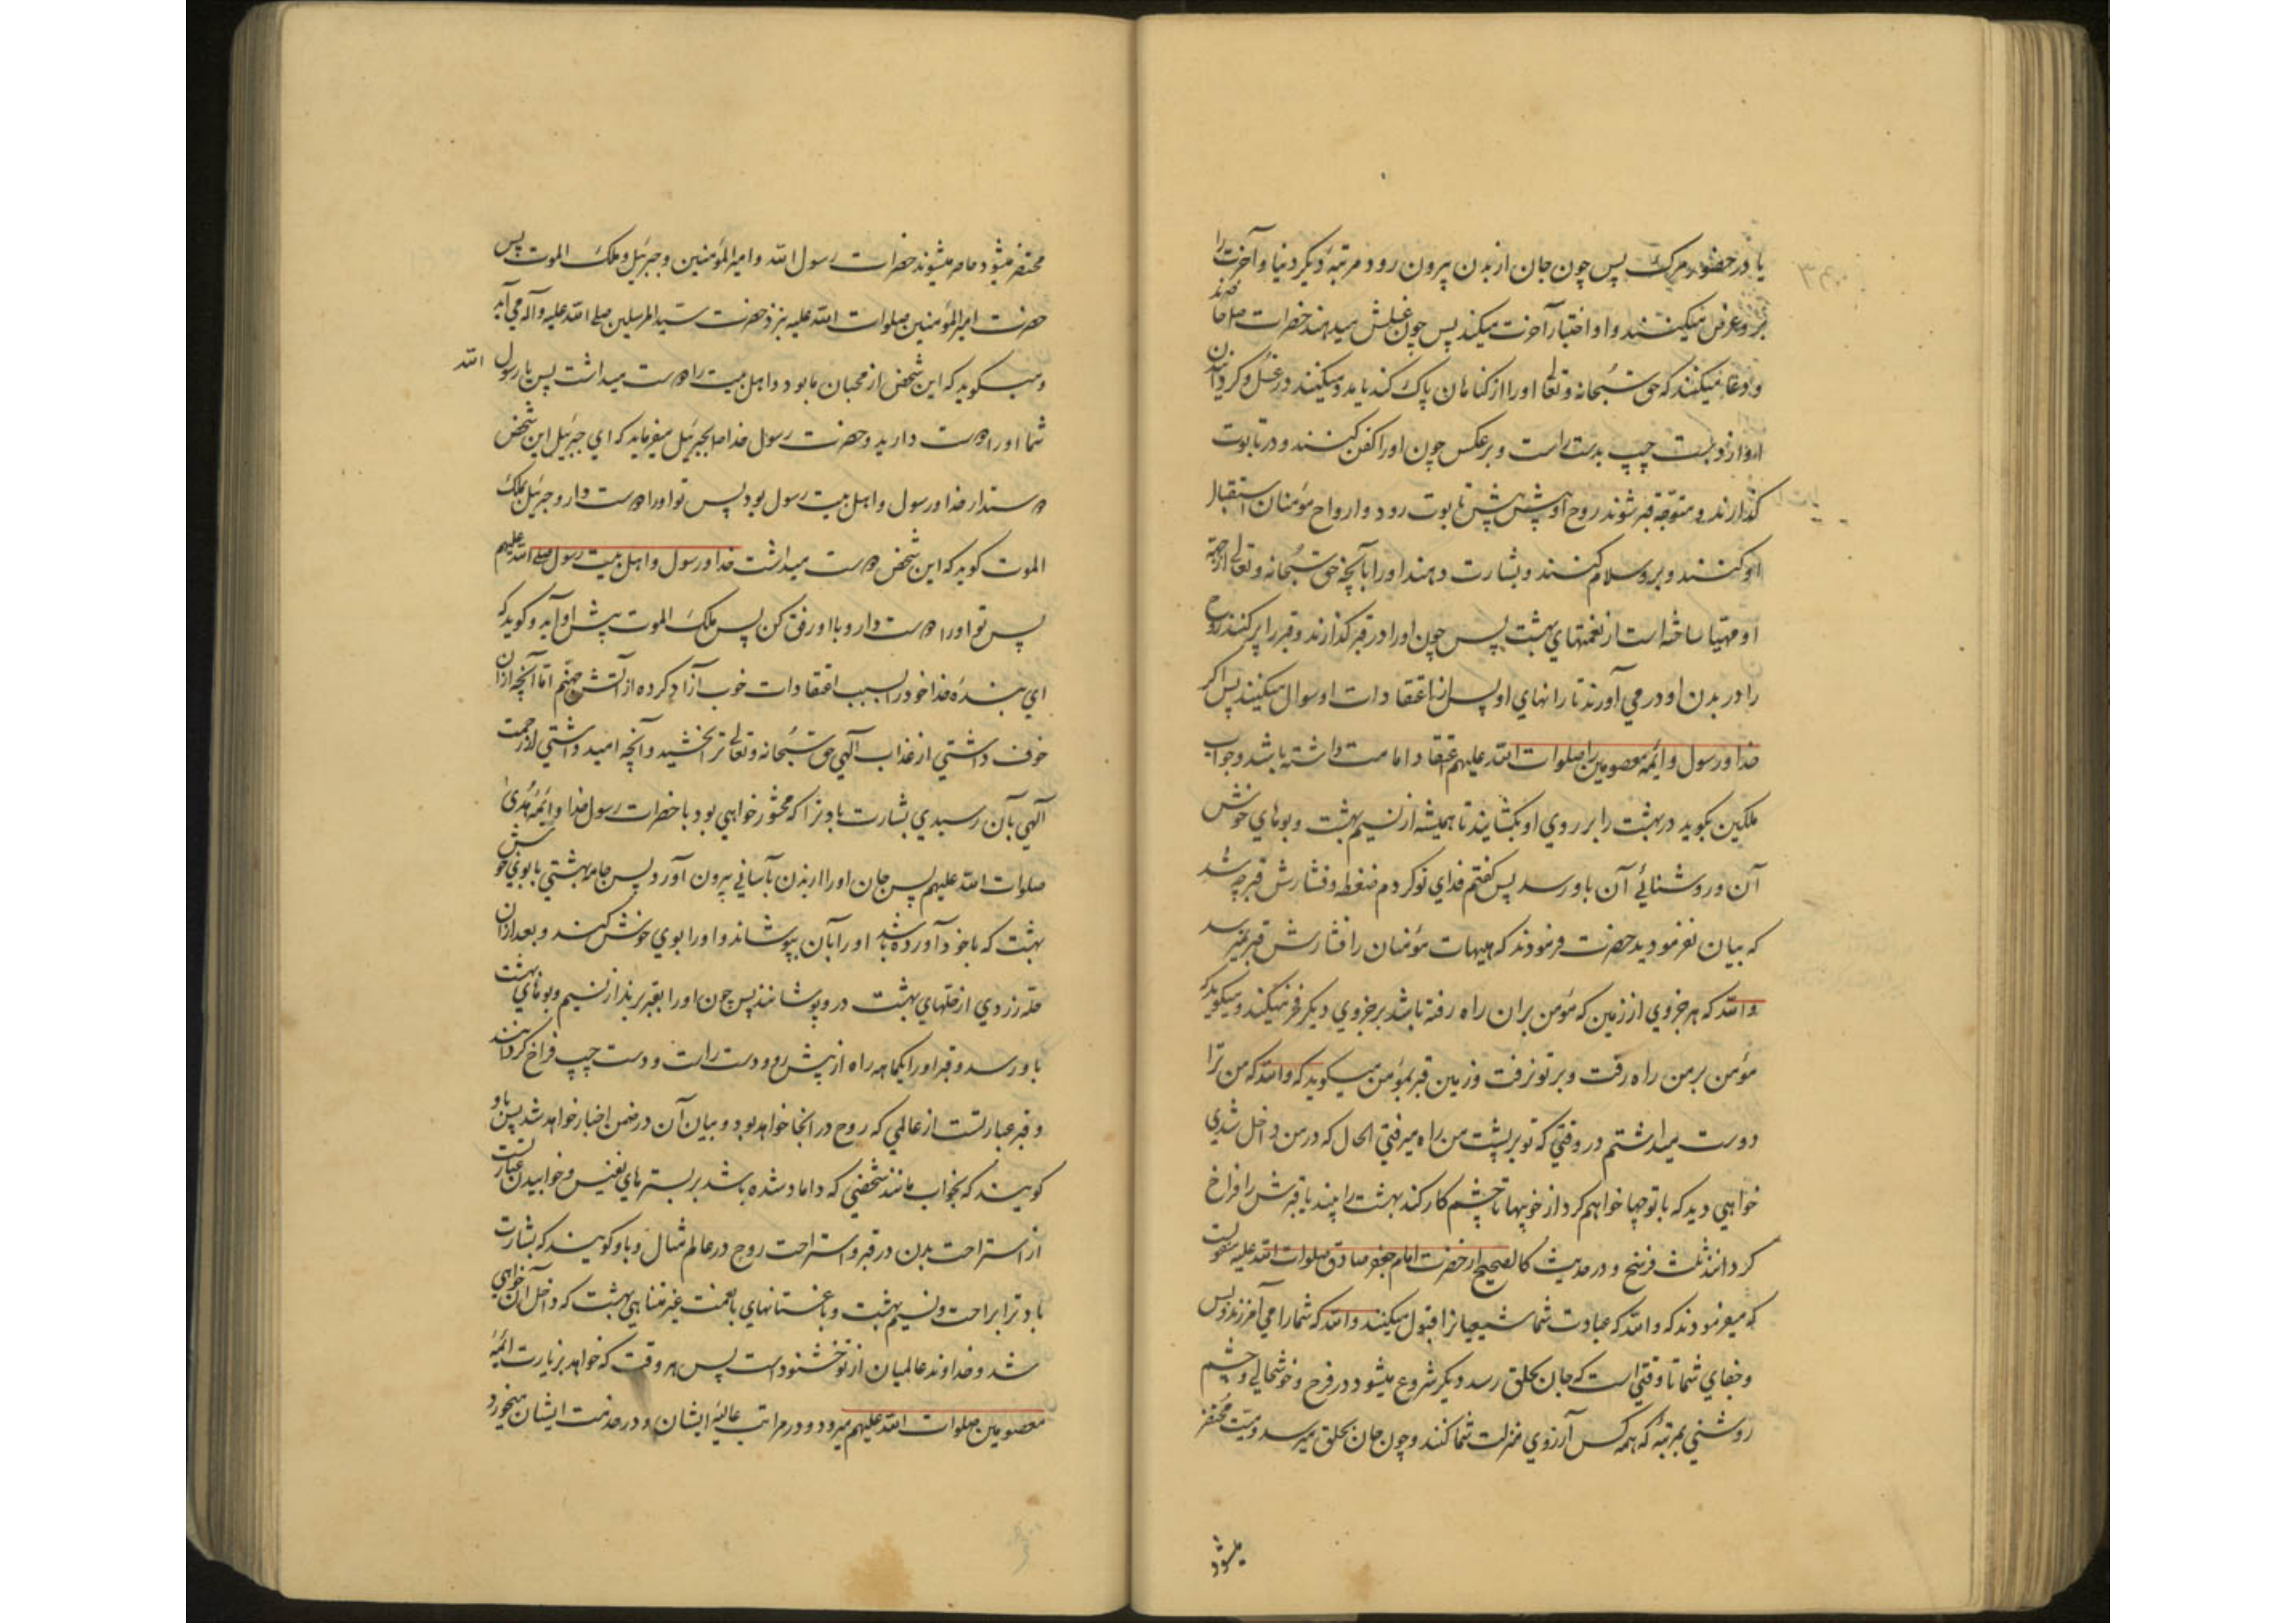 یا در حضور مرک پس چون جان از بدن بیرون رود مرتبهٔ دیکر دنیا و آخرت را
برو عرض میکنند و او اختیار آخرت میکند پس چون غسلش میدهند حضرات حاضرند
و دعا میکنند که حق سبحانه و تعالی او را از کناهان پاک کند یا مدد میکنند در غسل و کردانیدن
او از دست چپ بدست راست و برعکس چون او را کفن کنند و در تابوت
کذارند و متوجّه قبر شوند روح او پیش پیش تابوت رود و ارواح مؤمنان استقبال
او کنند و برو سلام کنند و بشارت دهند او را بآنچه حق سبحانه و تعالی از جهة
او مهیّا ساخته است از نعمتهای بهشت پس چون او را در قبر کذارند و قبر را پر کنند روح
را در بدن او در می آورند تا رانهای او پس از اعتقادات او سوال میکنند پس اکر
خدا و رسول و ایمهٔ معصومین را صلوات الله علیهم اعتقاد امامت داشته باشد و جواب
ملکین بکوید در بهشت را بر روی او بکشایند تا همیشه از نسیم بهشت و بوهای خوش
آن و روشنائے آن باو رسد پس کفتم فدای تو کردم ضغطه و فشارش قبر چه شد
که بیان نفرمودید حضرت فرمودند که هیهات مؤمنان را فشارش قبر نمیرسد
والله که هر جزوی از زمین که مؤمن بران راه رفته باشد بر جزوی دیکر فخر میکند و میکوید که
مؤمن بر من راه رفت و بر تو نرفت و زمین قبر بمؤمن میکوید که والله که من ترا
دوست میداشتم در وقتی که تو بر پشت من راه میرفتی الحال که در من داخل شدی
خواهی دید که با تو چها خواهم کرد از خوبیها تا چشم کار کند بهشت را بیند یا قبرش را فراخ
کردانند ثلث فرسخ و در حدیث کالصحیح از حضرت امام جعفر صادق صلوات الله علیه منقولست
که میفرمودند که والله که عبادت شما شیعیانرا قبول میکنند والله که شما را می آمرزند و پس
و جفای شما تا وقتی است که جان بحلق رسد دیکر شروع میشود در فرح و خوشحالی و چشم
روشنی بمرتبهٔ که همه کس آرزوی منزلت شما کنند و چون جان بحلق میرسد و میّت محتضر
میشود
محتضر میشود حاضر میشوند حضرات رسول الله و امیرالمؤمنین و جبرئیل و ملک الموت پس
حضرت امیرالمؤمنین صلوات الله علیه بنزد حضرت سیدالمرسلین صلے الله علیه و آله می آید
و میکوید که این شخص از محبان ما بود و اهل بیت را دوست میداشت پس یا رسول الله
شما او را دوست دارید و حضرت رسول خدا بجبرئیل میفرماید که ای جبرئیل این شخص
دوستدار خدا و رسول و اهل بیت رسول بود پس تو او را دوست دار و جبرئیل بملک
الموت کوید که این شخص دوست میداشت خدا و رسول و اهل بیت رسول صلے الله علیهم
پس تو او را دوست دار و با او رفق کن پس ملک الموت پیش او آید و کوید که
ای بندهٔ خدا خود را بسبب اعتقادات خوب آزاد کردهٔ از آتش جهنّم امّا آنچه ازان
خوف داشتی از عذاب آلهی حق سبحانه و تعالے ترا بخشید و آنچه امید داشتی از رحمت
آلهی بآن رسیدی بشارت باد ترا که محشور خواهی بود با حضرات رسول خدا و ایمّهٔ هدیٰ
صلوات الله علیهم پس جان او را از بدن بآسانی بیرون آورد پس جامه بهشتی با بوی خوش
بهشت که با خود آورده باشد او را بآن بپوشاند و او را بوی خوش کنند و بعد ازان
حلّه زردی از حلّهای بهشت درو پوشانند پس چون او را بقبر برند از نسیم و بوهای بهشت
باو رسد و قبر او را یکماهه راه از پیش رو و دست راست و دست چپ فراخ کردانند
و قبر عبارتست از عالمی که روح در انجا خواهد بود و بیان آن در ضمن اخبار خواهد شد پس باو
کویند که بخواب مانند شخصی که داماد شده باشد بر بسترهای نفیس و خوابیدن عبارتست
از استراحت بدن در قبر و استراحت روح در عالم مثال و باو کویند که بشارت
باد ترا براحت و نسیم بهشت و باغستانهای با نعمت غیر متناهی بهشت که داخل آن خواهی
شد و خداوند عالمیان از تو خشنود است پس هر وقت که خواهد بزیارت ائمّهٔ
معصومین صلوات الله علیهم میرود و در مراتب عالیهٔ ایشان و در خدمت ایشان میخورد